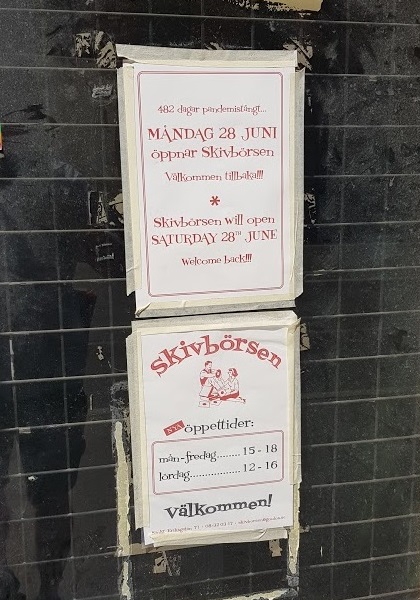 482 dagar pandemistängt...
MÅNDAG 28 JUNI
öppnar Skivbörsen
Välkommen tillbaka!!!
*
Skivbörsen will open
SATURDAY 28TH JUNE
Welcome back!!!
skivbörsen
NYA öppettider:
mån-fredag........ 15 - 18
lördag................. 12 - 16
välkommen!